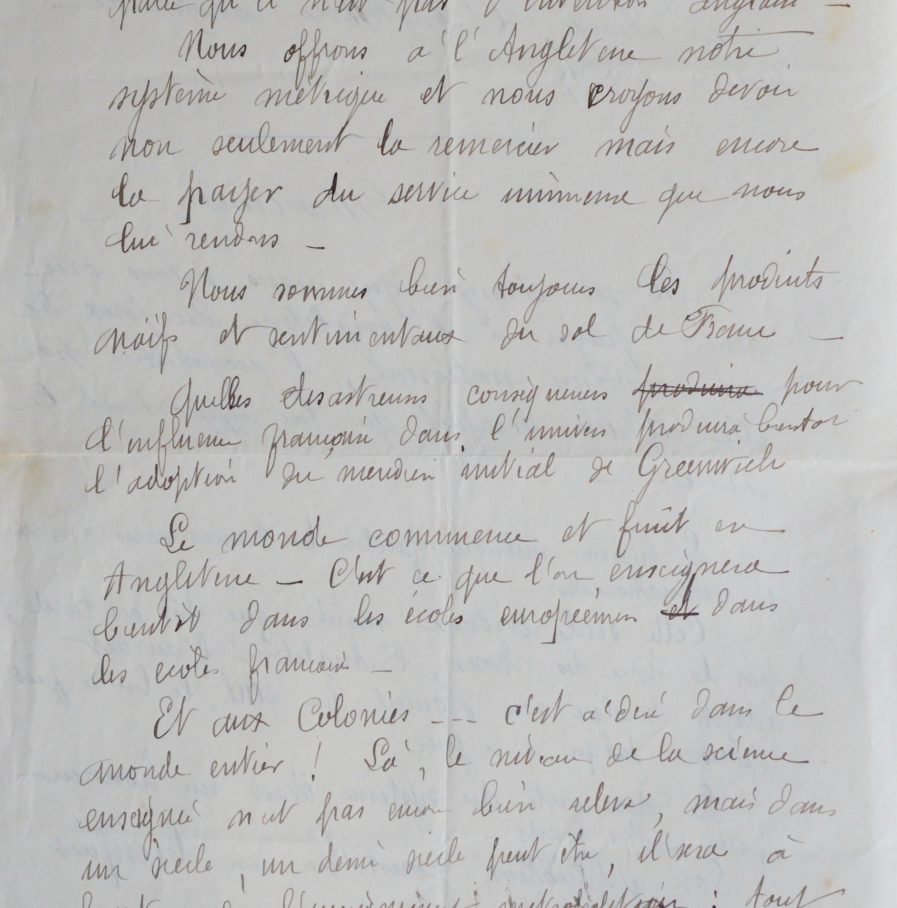 qu'il n'est pas d'invention anglaise –
Nous offrons à l'Angleterre notre
système métrique et nous croyons devoir
non seulement la remercier mais encore
la payer du service immense que nous
lui rendons –
Nous sommes bien toujours les produits
naïfs et sentimentaux du sol de France –
Quelles desastreuses consequences produira pour
l'influence française dans l'univers produira bientot
l'adoption du meridien initial de Greenwich
Le monde commence et finit en
Angleterre – C'est ce que l'on enseignera
bientôt dans les écoles européennes et dans
les ecoles françaises –
Et aux Colonies --- c'est à dire dans le
monde entier ! Là, le niveau de la science
enseignée n'est pas encore bien relevé, mais dans
un siècle, un demi siecle peut être, il sera à
métropolitain : tout